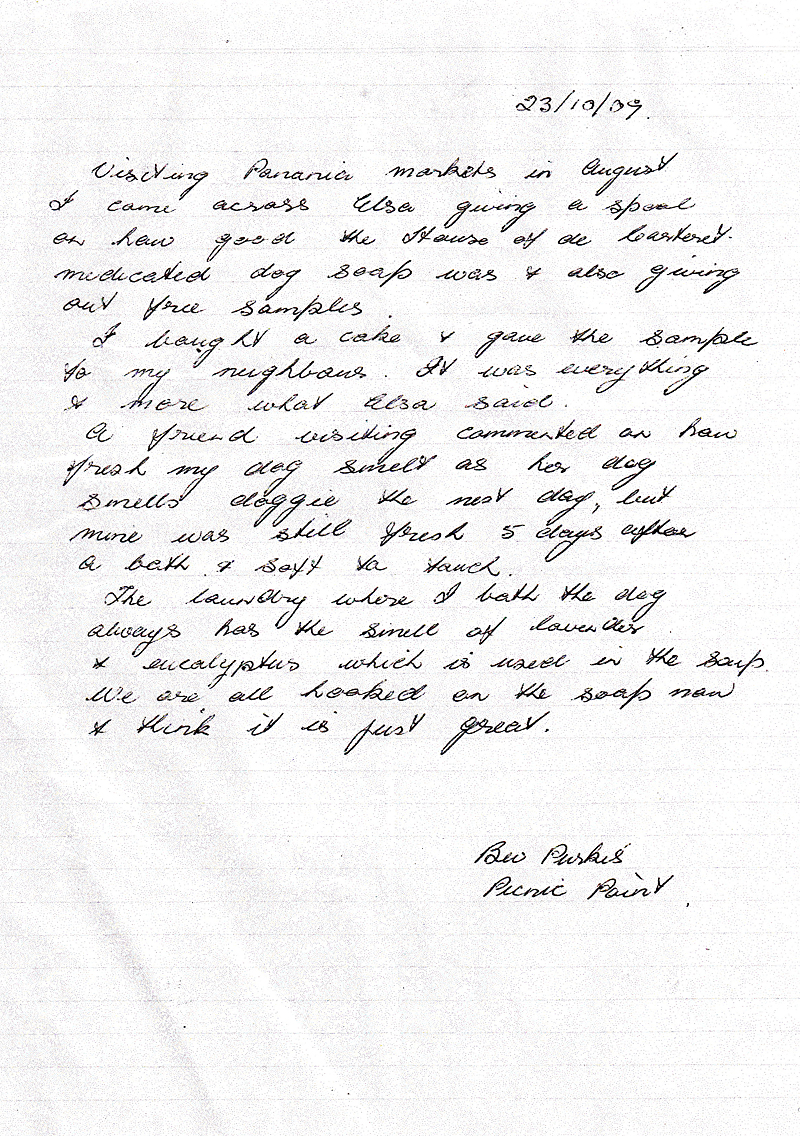 23/10/09.
Visiting Panania markets in August
I came across Elsa giving a speel
on how good the House of de
medicated dog soap was & also giving
out free samples.
I bought a cake & gave the sample
to my neighbours. It was everything
& more what Elsa said.
A friend visiting commented on how
fresh my dog smelt as her dog
smells doggie the next day, but
mine was still fresh 5 days after
a bath & soft to touch.
The laundry where I bath the dog
always has the smell of lavender
& eucalyptus which is used in the soap.
We are all hooked on the soap now
& think it is just great.
Bev Purkis
Picnic Point.